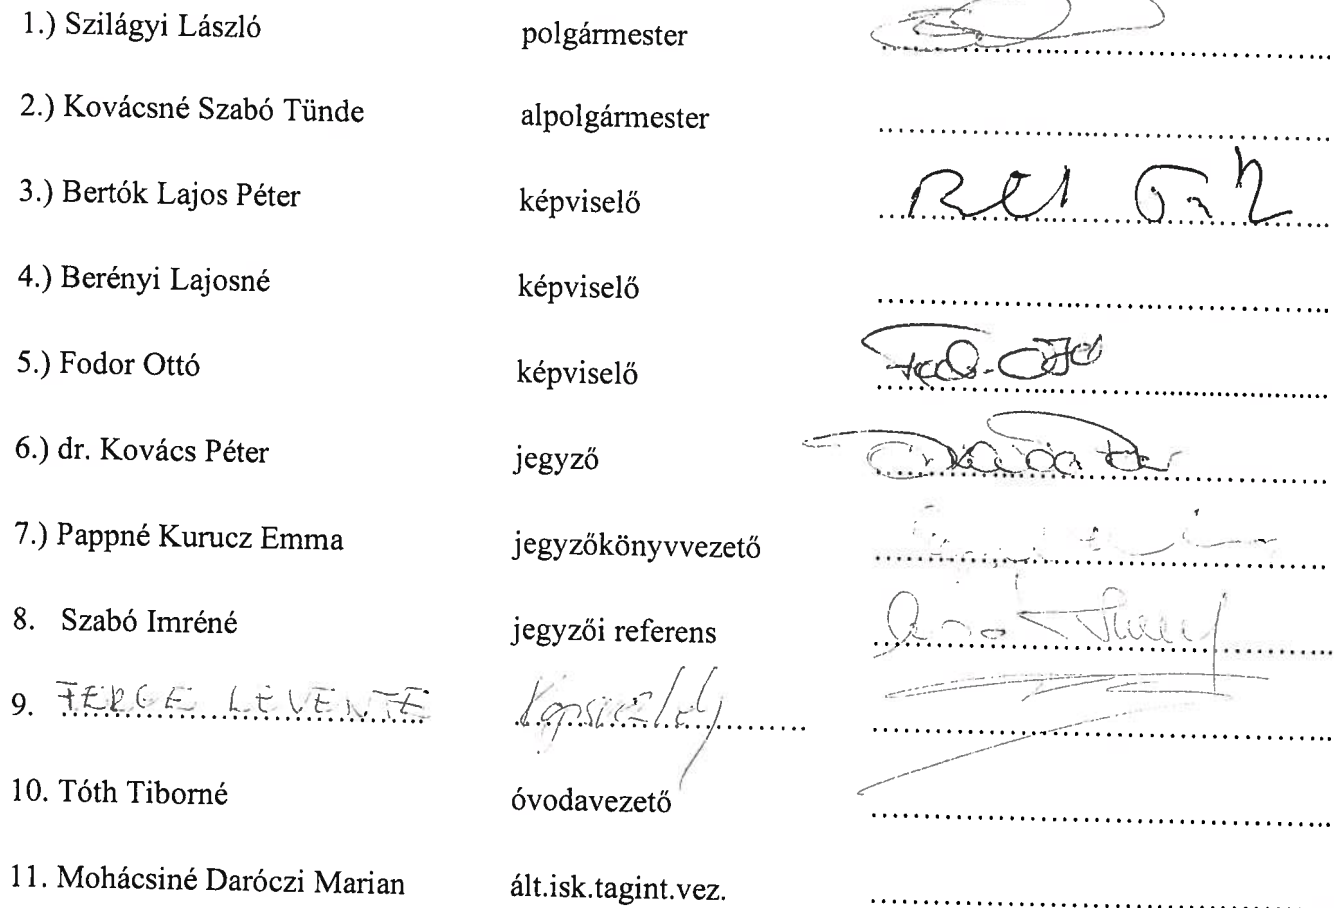 1.) Szilágyi László polgármester
2.) Kovácsné Szabó Tünde alpolgármester
3.) Bertók Lajos Péter képviselő
4.) Berényi Lajosné képviselő
5.) Fodor Ottó képviselő
6.) dr. Kovács Péter jegyző
7.) Pappné Kurucz Emma jegyzőkönyvvezető
8. Szabó Imréné jegyzői referens
9. FERGE LEVENTE
10. Tóth Tiborné óvodavezető
11. Mohácsiné Daróczi Marian ált.isk.tagint.vez.